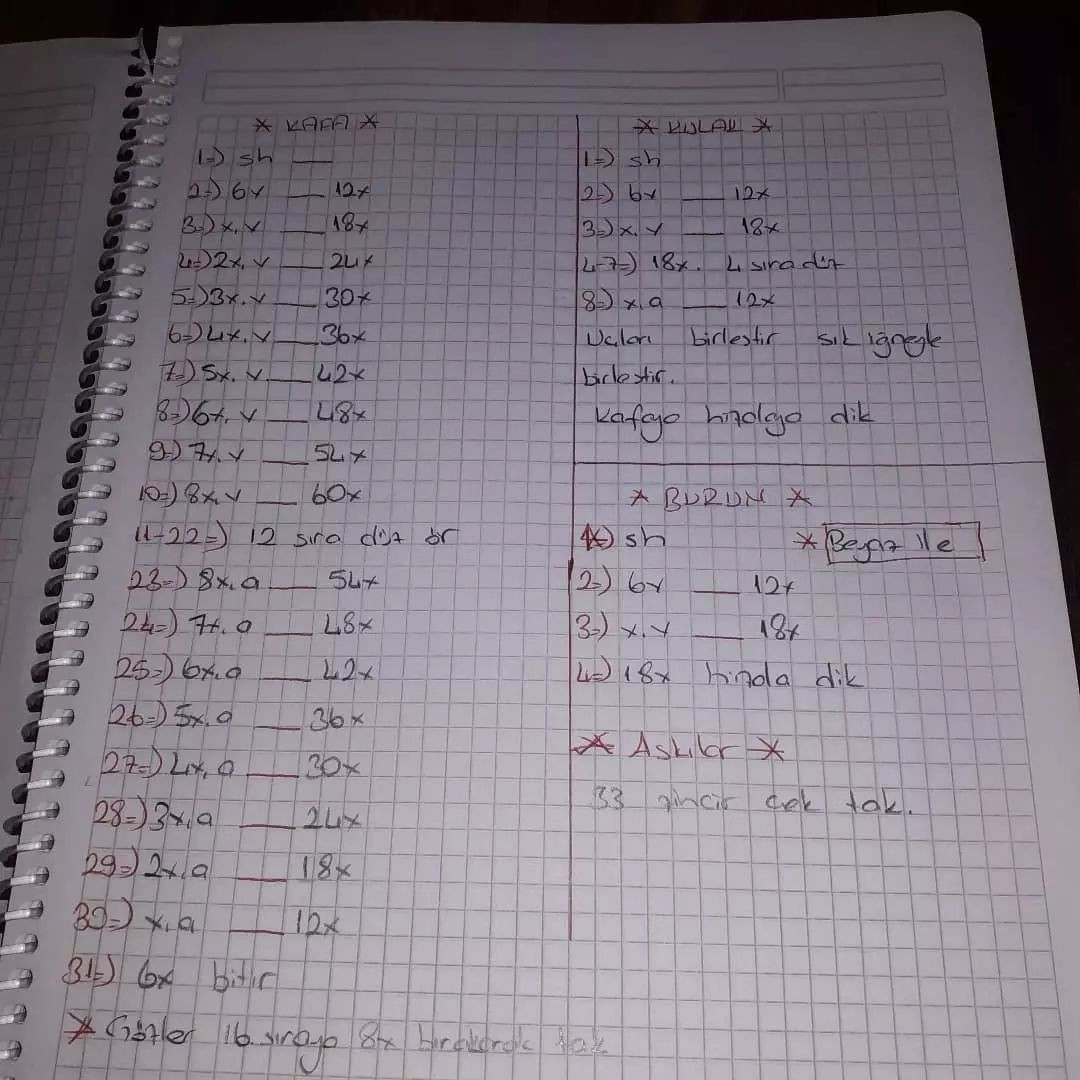 * KAFA *
1-) sh —
2-) 6v — 12x
3-) x,v — 18x
4-) 2x,v — 24x
5-) 3x,v — 30x
6-) 4x,v — 36x
7-) 5x,v — 42x
8-) 6x,v — 48x
9-) 7x,v — 54x
10-) 8x,v — 60x
11-22-) 12 sıra düz ör
23-) 8x,a — 54x
24-) 7x,a — 48x
25-) 6x,a — 42x
26-) 5x,a — 36x
27-) 4x,a — 30x
28-) 3x,a — 24x
29-) 2x,a — 18x
30-) x,a — 12x
31-) 6x bitir
* Gözler 16.sıraya 8x bırakarak tak
* KULAK *
1-) sh
2-) 6v — 12x
3-) x,v — 18x
4-7-) 18x. 4 sıra düz
8-) x,a — 12x
Uçları birleştir sık iğneyle
birleştir.
Kafaya hizalayıp dik
* BURUN *
1-) sh * Beyaz ile
2-) 6v — 12x
3-) x,v — 18x
4-) 18x hizala dik
* Askılar *
33 zincir çek tak.